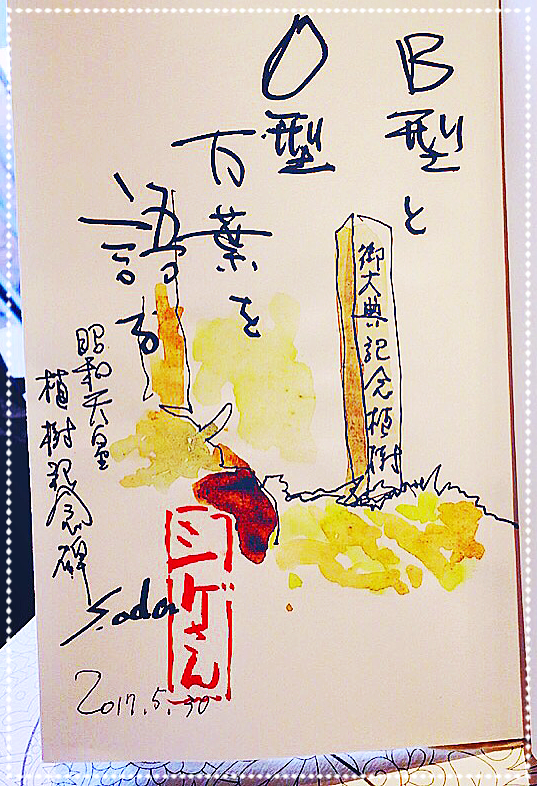 B型と
O型
百葉を
語る
御大典記念植樹
昭和天皇
植樹記念碑
S.oda
シゲさん
2017.5.30